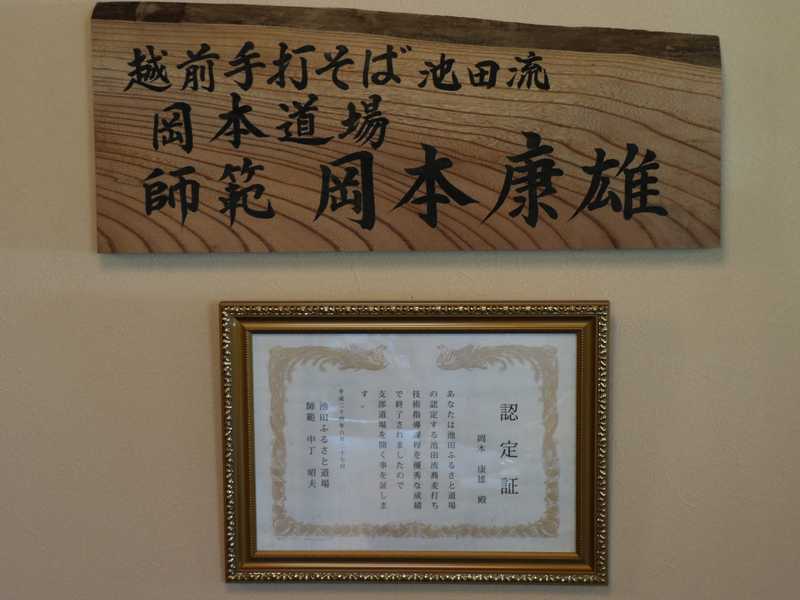 越前手打そば 池田流
岡本道場
師範 岡本康雄
認定証
岡本 康雄 殿
あなたは池田ふるさと道場
の認定する池田流蕎麦打ち
技術指導課程を優秀な成績
で終了されましたので
支部道場を開く事を証しま
す。
平成二十四年六月二十七日
池田ふるさと道場
師範 中丁 昭夫